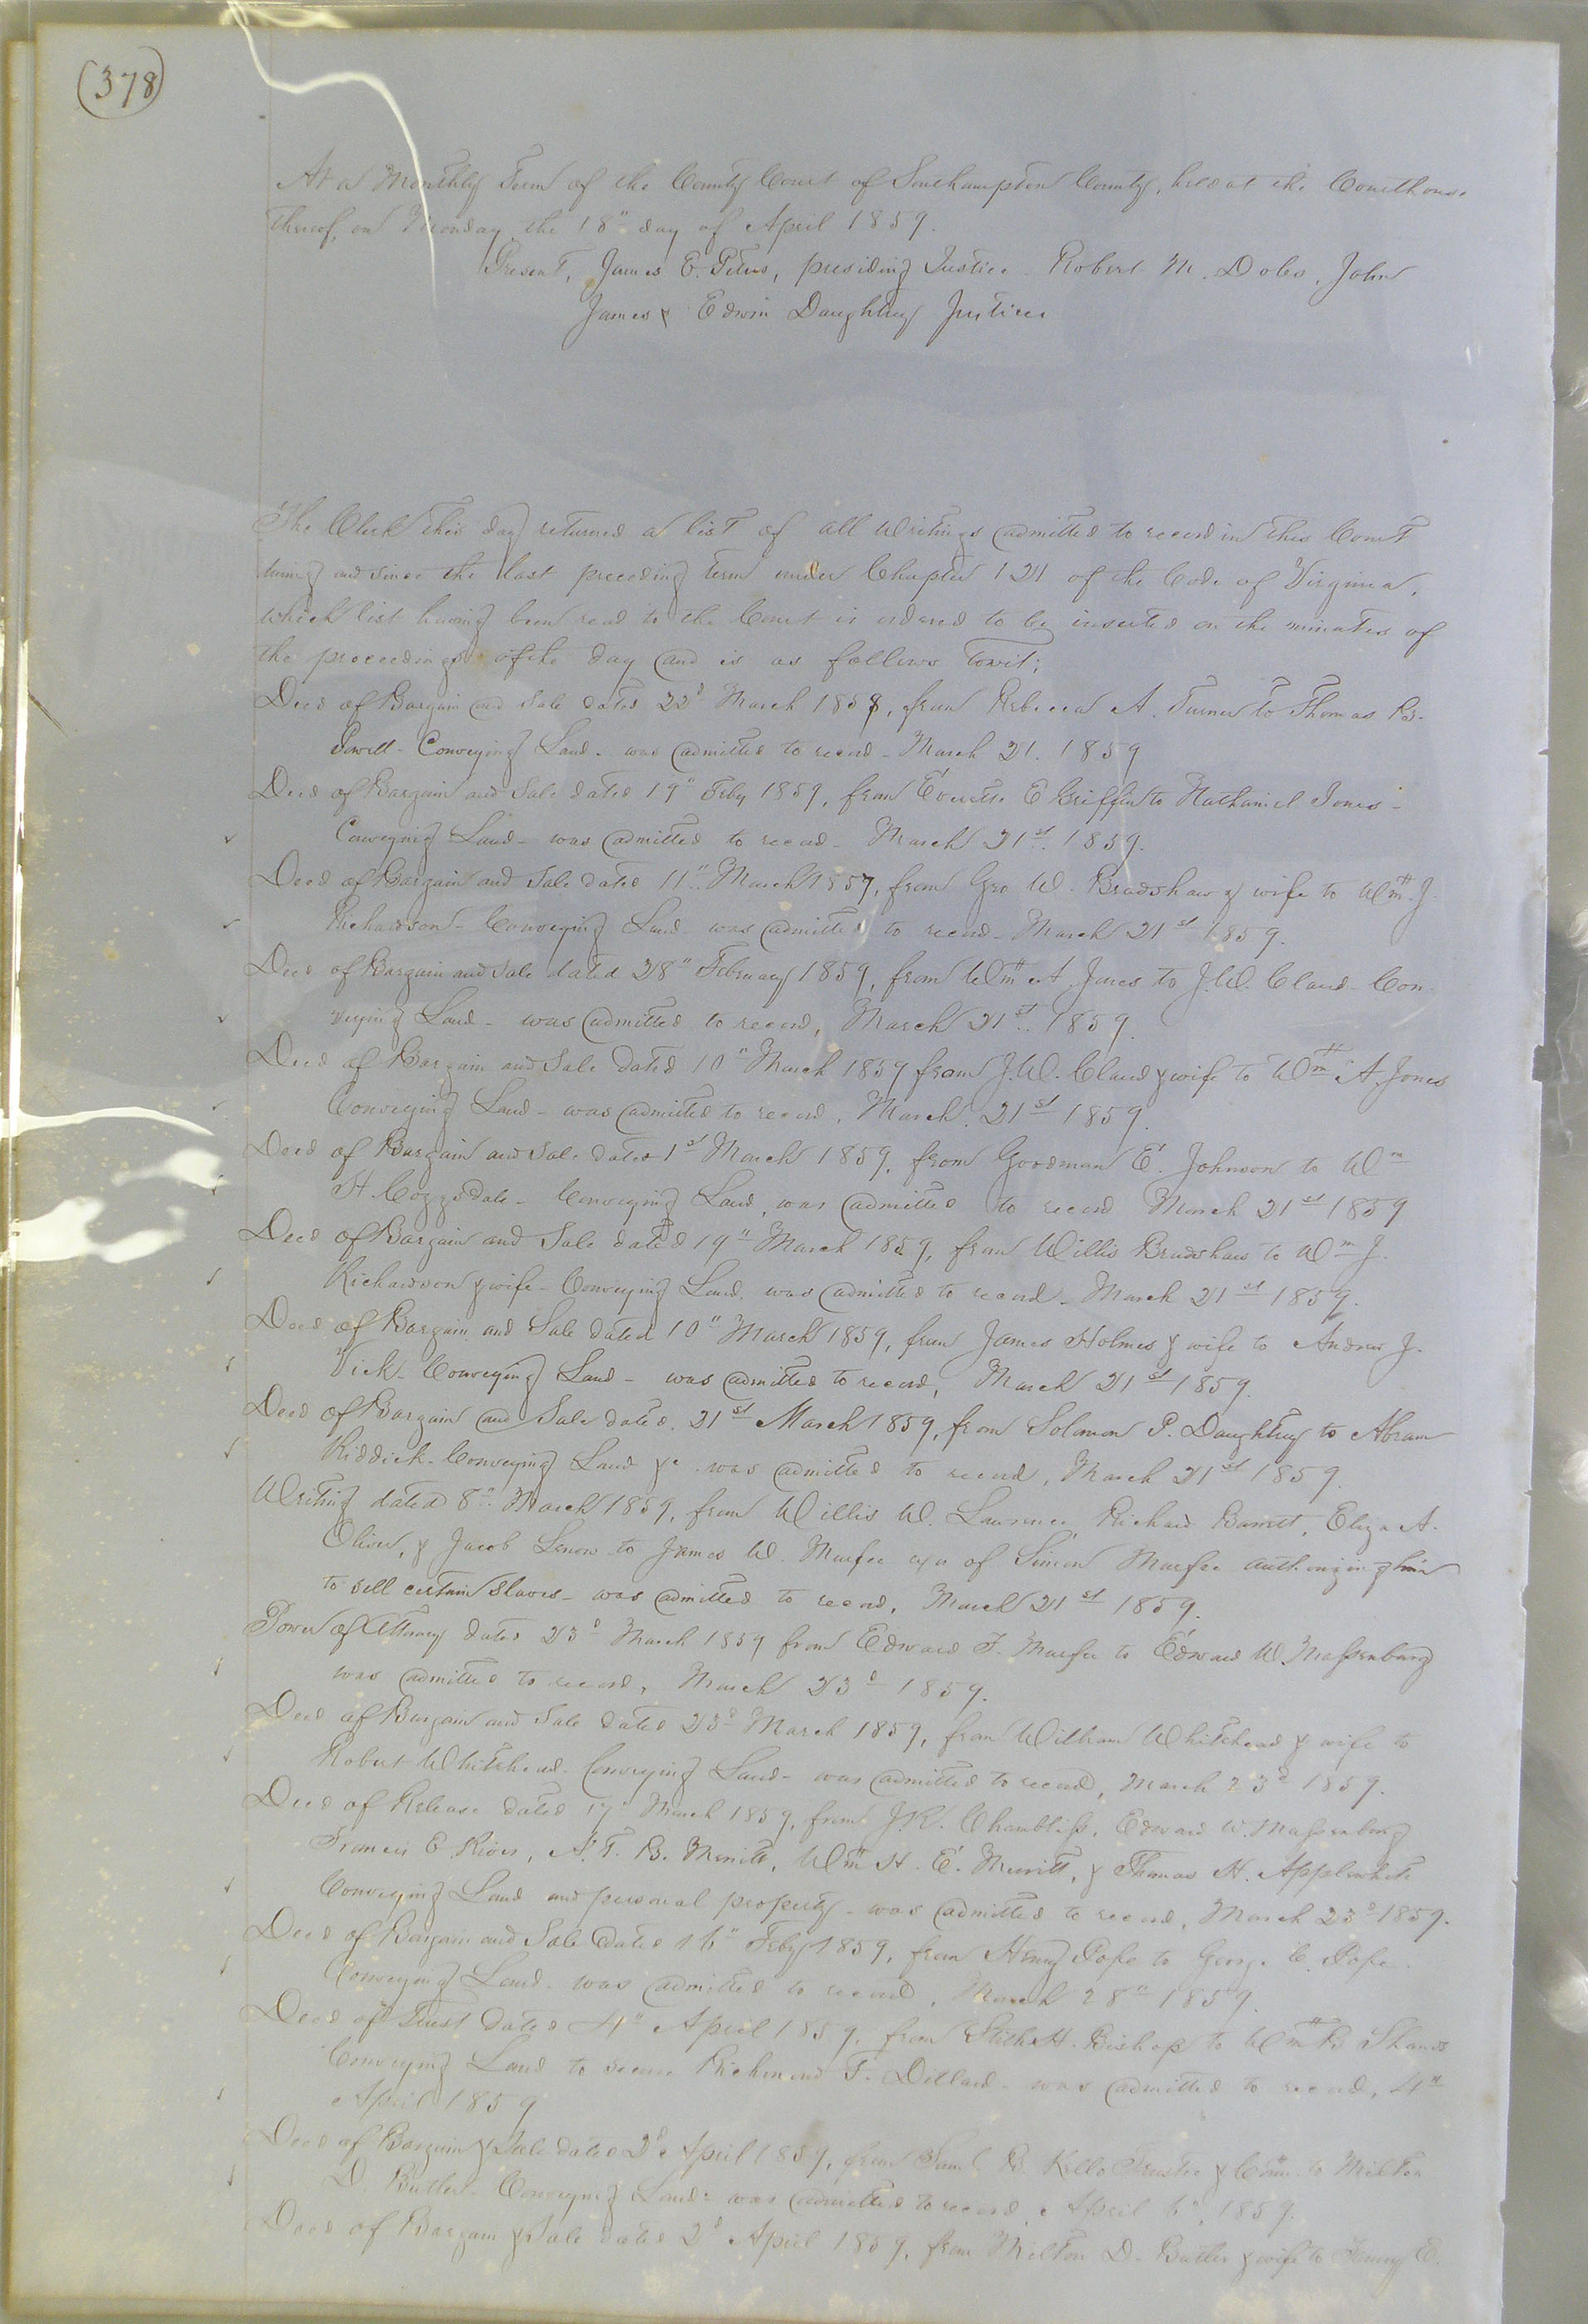 (378)
At a Monthly Term of the County Court of Southampton County, held at the Courthouse
thereof, on Monday the 18" day of April 1859.
Present, James E. Peters, presiding Justice. Robert M. Doles, John
James & Edwin Daughtrey Justices
The Clerk this day returned a list of all Writings admitted to record in this Court
during and since the last preceding term under Chapter 121 of the Code of Virginia,
which list having been read to the Court is ordered to be inserted on the minutes of
the proceedings of the day and is as follows Towit;
Deed of Bargain and Sale dated 22d March 1858, from Rebecca A. Turner to Thomas B.
Powell - Conveying Land - was admitted to record - March 21. 1859
Deed of Bargain and Sale dated 19" Feby 1859, from E. Griffin to Nathaniel Jones -
Conveying Land - was admitted to record - March 21st. 1859.
Deed of Bargain and Sale dated 11" March 1857, from Geo W. Bradshaw & wife to Wm. J.
Richardson - Conveying Land - was admitted to record - March 21st 1859.
Deed of Bargain and Sale dated 28" February 1859, from Wm A. Jones to J. W. Claud - Con-
veying Land - was admitted to record, March 21st. 1859.
Deed of Bargain and Sale dated 10" March 1859 from J. W. Claud & wife to Wm A. Jones
Conveying Land - was admitted to record, March 21st 1859.
Deed of Bargain and Sale dated 1st March 1859, from Goodman E. Johnson to Wm
H. Coggsdale - Conveying Land, was admitted to record March 21st 1859
Deed of Bargain and Sale dated 19" March 1859, from Willis Bradshaw to Wm J.
Richardson & wife - Conveying Land, was admitted to record - March 21st 1859.
Deed of Bargain and Sale dated 10" March 1859, from James Holmes & wife to Andrew J.
Vick - Conveying Land - was admitted to record, March 21st 1859.
Deed of Bargain and Sale dated 21st March 1859, from Solomon P. Daughtrey to Abram
Riddick - Conveying Land &c. was admitted to record, March 21st 1859.
Writing dated 8" March 1859, from Willis W. Lawrence, Richard Barrett, Eliza A.
Oliver, & Jacob Lenow to James W. Murfee exr of Simon Murfee authorizing him
to sell certain slaves - was admitted to record, March 21st 1859.
Power of Attorney dated 23d March 1859 from Edward F. Murfee to Edward W. Massenburg
was admitted to record, March 23d 1859.
Deed of Bargain and Sale dated 23d March 1859, from William Whitehead & wife to
Robert Whitehead - Conveying Land - was admitted to record, March 23d 1859.
Deed of Release dated 17" March 1859, from J. R. Chambliss, Edward W. Massenburg
Francis E. Rives, A. T. B. Merritt, Wm H. E. Merritt, & Thomas H. Applewhite
Conveying Land and personal property - was admitted to record, March 23d 1859.
Deed of Bargain and Sale dated 16" Feby 1859, from Henry Pope to George C. Pope.
Conveying Land - was admitted to record, March 28" 1859.
Deed of Trust dated 4" April 1859, from Stith H. Bishop to Wm B Shands
Conveying Land to secure Richmond F. Dillard - was admitted to record, 4"
April 1859
Deed of Bargain & Sale dated 2d April 1859, from Saml. B. Kello Trustee & Comr. to Milton
D. Butler - Conveying Land - was admitted to record, April 6", 1859.
Deed of Bargain & Sale dated 2d April 1859, from Milton D. Butler & wife to E.